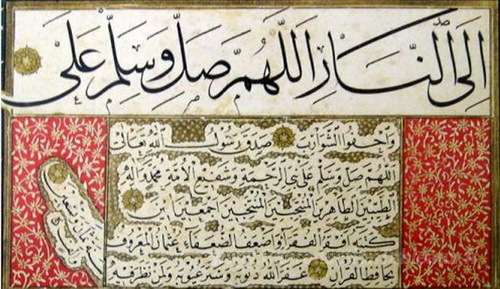 الى النار اللهم صل وسلم على
واحفوا الشوارب صدق رسول الله
اللهم صل وسلم على نبي الرحمة وشفيع الامة محمد واله
الطيبين الطاهرين المنتجبين اجمعين
كتبه افقر الفقرآء واضعف الضعفاء عثمان المعروف
بحافظ القرآن غفر الله ذنوبه وستر عيوبه ولمن نظر فيه